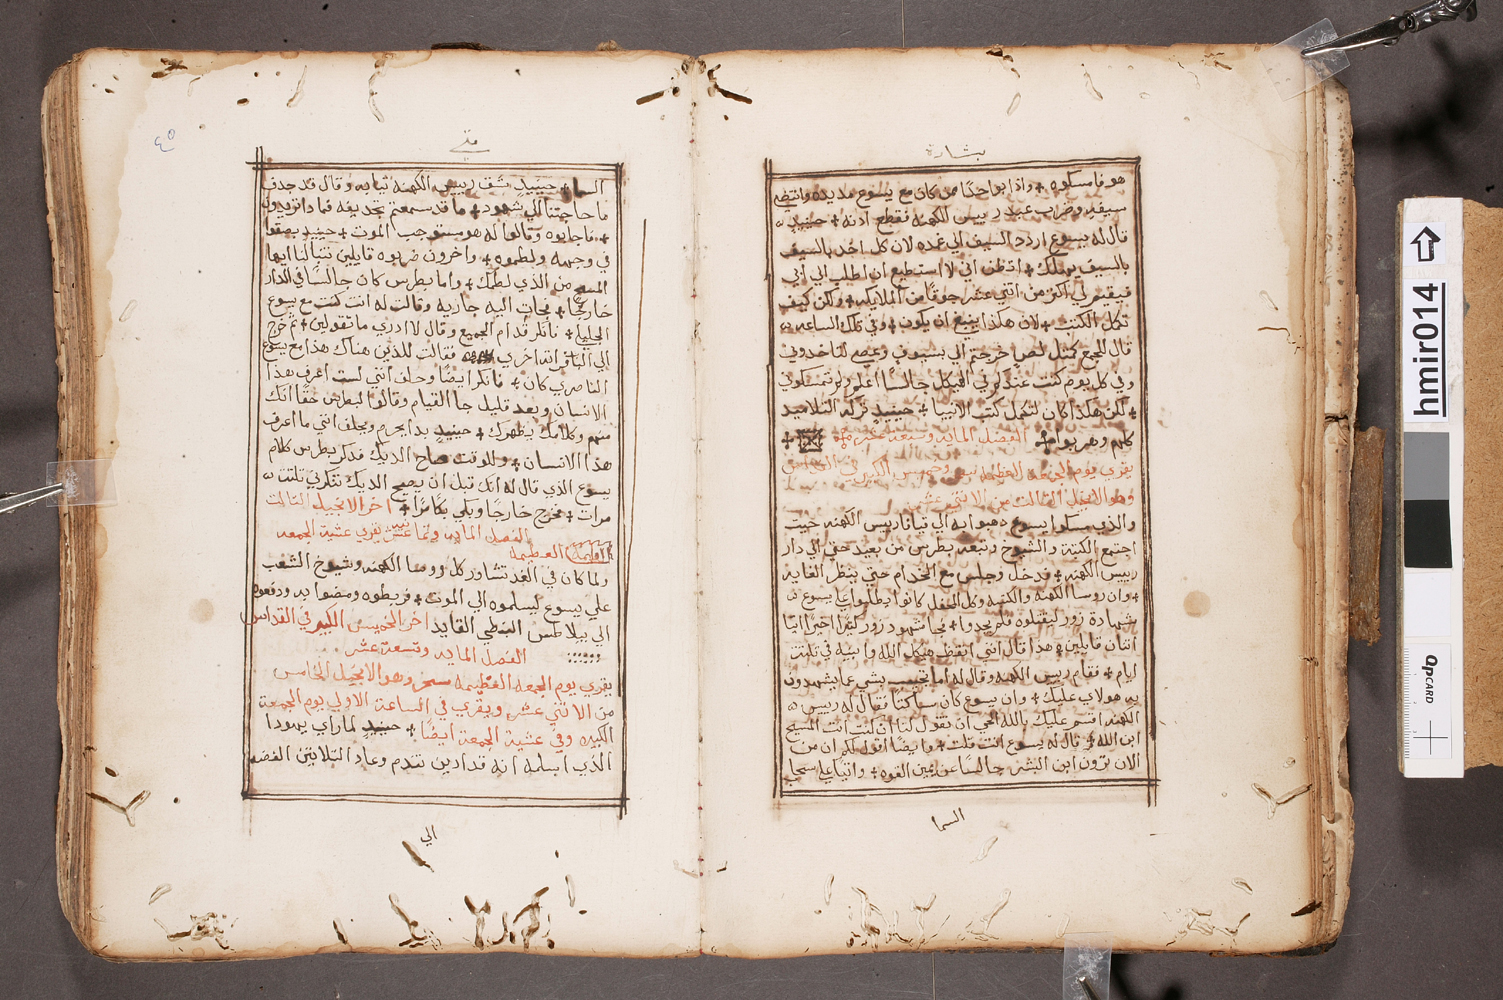 بشارة
هو فامسكوه + واذا بواحدًا من كان مع يسوع مد يده وانتضي
سيفه وضرب عبد رييس الكهنه فقطع اذنه + حينيدٍ
قال له يسوع اردد السيف الي غمده لان كل اخد بالسيف
بالسيف يهلك + اتظن اني لا استطيع ان اطلب الي ابي
فيقيم لي اكثر من اتني عشر جوقًا من الملايكه + ولكن كيف
تكمل الكتب + لان هكذا ينبغي ان يكون + وفي تلك الساعه
قال للجمع كمثل لصٍ خرجتم الي بسيوفٍ وعصي لتاخدوني
وفي كل يوم كنت عندكم في الهيكل جالسًا اعلم ولم تمسكوني
+ لكن هكذا كان لتكمل كتب الانبيا + حينيدٍ تركه التلاميد
كلهم وهربوا + الفصل المايه وسبعة عشر
يقري يوم الجمعه العظيمه وخميس الكبير في
وهو الانجيل الثالث من الاتني عشر
والذي مسكوا يسوع دهبوا به الي قيافا رييس الكهنه حيت
اجتمع الكتبة والشيوخ وتبعه بطرس من بعيد حتي الي دار
رييس الكهنه + فدخل وجلس مع الخدام حتي ينظر الغايه
+ وان روسا الكهنه والكتبه وكل المحفل كانوا يطلبوا علي يسوع
شهادة زور ليقتلوه فلم يجدوا + فجا شهود زور كتيرًا اخيرًا اتيا
اتنان قايلين + هدا قال انني انقض هيكل الله وابنيه في تلتت
ايام + فقام رييس الكهنه وقال له اما تجيب بشي عما يشهدون
به هولاي عليك + وان يسوع كان ساكتًا فقال له رييس
الكهنه اقسم عليك بالله الحي ان تقول لنا ان كنت انت المسيح
ابن الله + قال له يسوع انت قلت + وايضًا اقول لكم ان من
الان ترون ابن البشر جالسًا عن يمين القوه + واتيا علي سحاب
السما
متي
٤٥
السما + حينيدٍ شق رييس الكهنه ثيابه وقال قد جدف
ما حاجتنا الي شهود + ها قد سمعتم تجديفه فما دا تريدون
+ فاجابوه وقالوا له هو مستوجب الموت + حينيدٍ بصقوا
في وجهه ولطموه + واخرون ضربوه قايلين تنبا لنا ايها
المسيح من الذي لطمك + واما بطرس كان جالسًا في الدار
خارجًا + فجات اليه جاريه وقالت له انت كنت مع يسوع
الجليلي + فانكر قدام الجميع وقال لا ادري ما تقولين + ثم خرج
الي الباب فراته اخري فقالت للذين هناك هذا مع يسوع
الناصري كان + فانكر ايضًا وحلف انني لست اعرف هذا
الانسان وبعد قليل جا القيام وقالوا لبطرس حقًا انك
منهم وكلامك يظهرك + حينيدٍ بدا يحرم ويحلف انني ما اعرف
هذا الانسان + وللوقت صاح الديك فذكر بطرس كلام
يسوع الذي قال له انك قبل ان يصيح الديك تنكرني تلتت
مرات + فخرج خارجًا وبكي بكاً مرًا + اخر الانجيل التالت
الفصل المايه وتمانية عشر يقري عشية الجمعه
العظيمه
ولما كان في الغد تشاور كل روسا الكهنه وشيوخ الشعب
علي يسوع ليسلموه الي الموت + فربطوه ومضوا به ودفعوه
الي بيلاطس البنطي القايد اخر الخميس الكبير في القداس
الفصل المايه وتسعة عشر
يقري يوم الجمعه العظيمه سحر وهو الانجيل الخامس
من الاتني عشر ويقري في الساعة الاولي يوم الجمعة
الكبيره وفي عشية الجمعة ايضًا + حينيدٍ لما راي يهودا
الذي اسلمه انه قد ادين تندم وعاد التلاتين الفضه
الي
hmir014
QPCARD